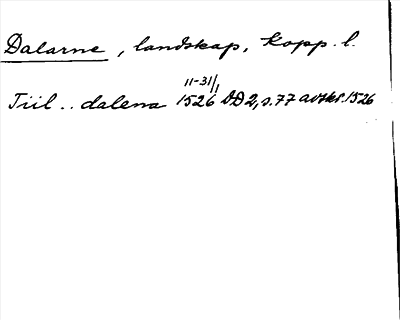 Dalarne, landskap, Kopp. l.
11-31/1
Tiil .. dalena 1526 DD2, s.77 avskr. 1526